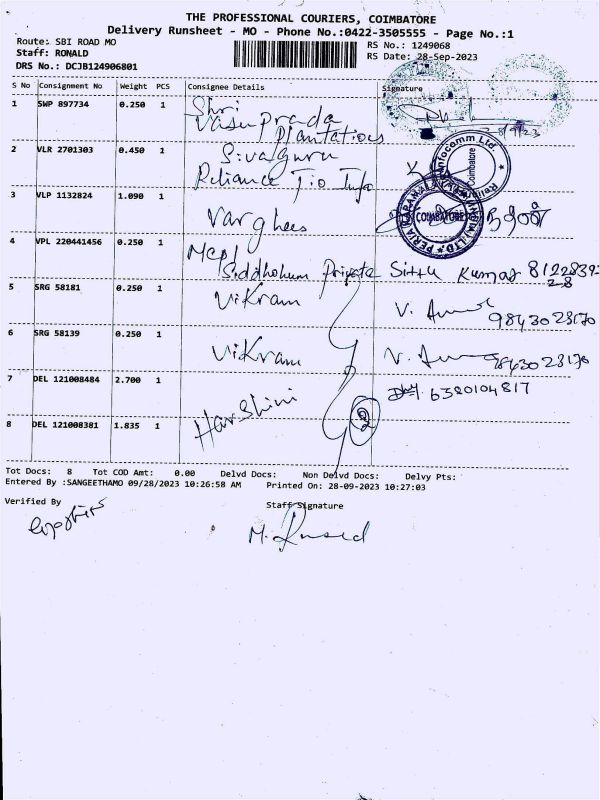 THE PROFESSIONAL COURIERS, COIMBATORE
Delivery Runsheet - MO - Phone No.:0422-3505555 - Page No.:1
Route: SBI ROAD MO
RS No.: 1249068
Staff: RONALD
RS Date: 28-Sep-2023
DRS No.: DCJB124906801
S No Consignment No Weight PCS Consignee Details Signature
1 SWP 897734 0.250 1 Shri
Vasuprada
Plantations
2 VLR 2701303 0.450 1 Sivaguru
Reliance Jio Info
Infocomm Ltd.
Coimbatore
3 VLP 1132824 1.090 1 Varghees
COIMBATORE
4 VPL 220441456 0.250 1
Siddhohum Private Sittu Kumar
5 SRG 58181 0.250 1 Vikram
9843023170
6 SRG 58139 0.250 1 Vikram
9843023170
7 DEL 121008484 2.700 1 Harshini 6380104817
8 DEL 121008381 1.835 1
2
Tot Docs: 8 Tot COD Amt: 0.00 Delvd Docs: Non Delvd Docs: Delvy Pts:
Entered By :SANGEETHAMO 09/28/2023 10:26:58 AM Printed On: 28-09-2023 10:27:03
Verified By
Staff Signature